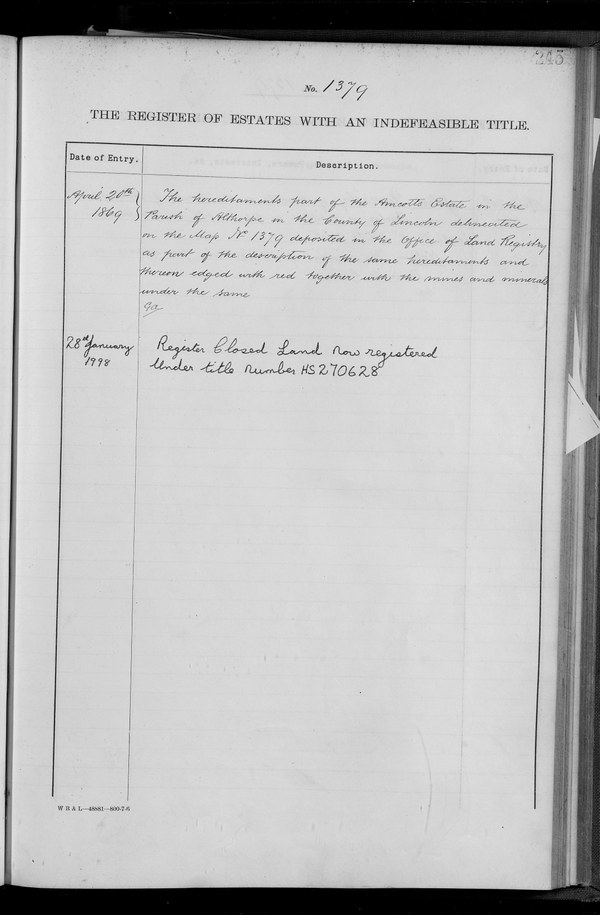 243
No. 1379
THE REGISTER OF ESTATES WITH AN INDEFEASIBLE TITLE.
Date of Entry.
Description.
April 20th 1869
The hereditaments part of the Amcotts Estate in the
Parish of Althorpe in the County of Lincoln delineated
on the Map No 1379 deposited in the Office of Land Registry
as part of the description of the same hereditaments and
thereon edged with red together with the mines and minerals
under the same
28th January
1998
Register Closed Land now registered
Under title number HS270628
W B & L—48881—800-7-6